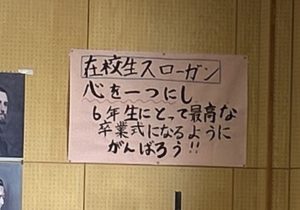 在校生スローガン
心を一つにし
6年生にとって最高な
卒業式になるように
がんばろう!!